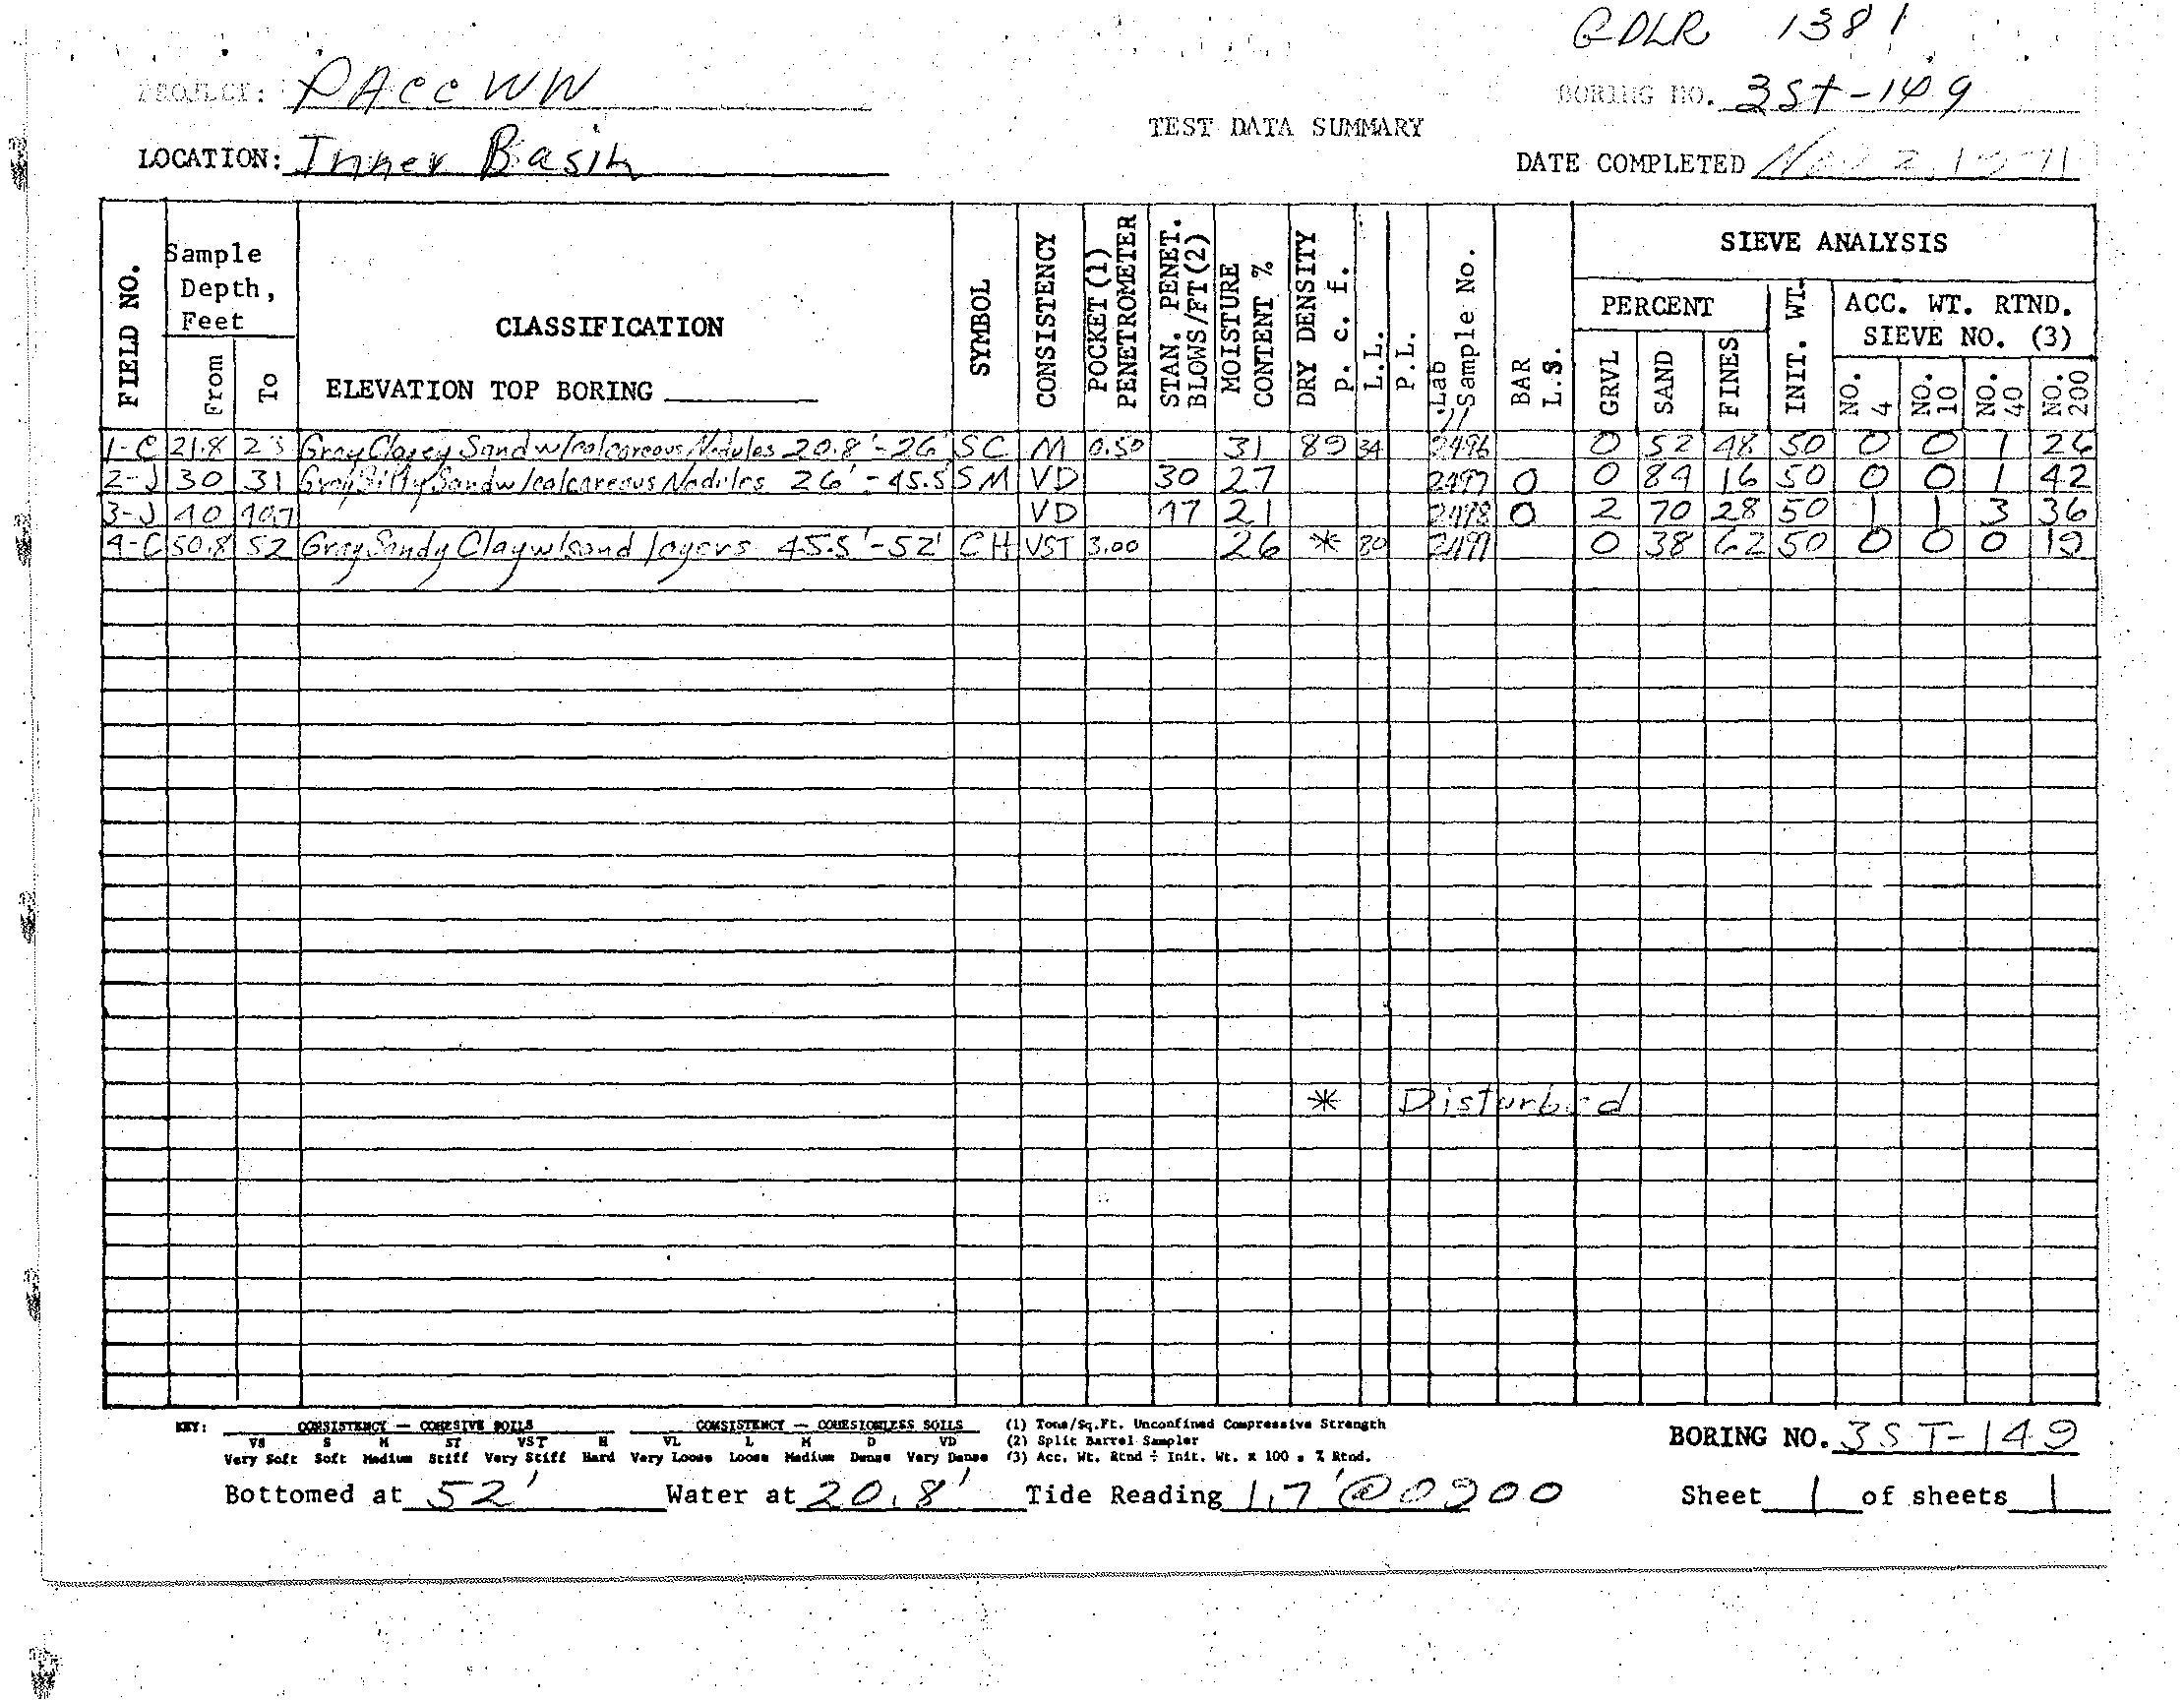 GDLR 1381
PROJECT: PAccWW
BORING NO. 3ST-149
TEST DATA SUMMARY
LOCATION: Inner Basin
DATE COMPLETED Nov 2, 1971
FIELD NO.
Sample Depth, Feet
From
To
CLASSIFICATION
ELEVATION TOP BORING
SYMBOL
CONSISTENCY
POCKET (1) PENETROMETER
STAN. PENET. BLOWS/FT (2)
MOISTURE CONTENT %
DRY DENSITY p. c. f.
L.L.
P.L.
Lab Sample No.
BAR L.S.
SIEVE ANALYSIS
PERCENT
GRVL
SAND
FINES
INIT. WT.
ACC. WT. RTND. SIEVE NO. (3)
NO. 4
NO. 10
NO. 40
NO. 200
1-C 21.8 23 Gray Clayey Sand w/calcareous Nodules 20.8'-26' SC M 0.50 31 89 34 2496 0 52 48 50 0 0 1 26
2-J 30 31 Gray Silty Sand w/calcareous Nodules 26'-45.5 SM VD 30 27 2497 0 0 84 16 50 0 0 1 42
3-J 40 40.7 VD 17 21 2498 0 2 70 28 50 1 1 3 36
4-C 50.8 52 Gray Sandy Clay w/sand layers 45.5'-52' CH VST 3.00 26 * 80 2499 0 38 62 50 0 0 0 19
* Disturbed
KEY: CONSISTENCY — COHESIVE SOILS CONSISTENCY — COHESIONLESS SOILS (1) Tons/Sq.Ft. Unconfined Compressive Strength
VS S M ST VST H VL L M D VD (2) Split Barrel Sampler
Very Soft Soft Medium Stiff Very Stiff Hard Very Loose Loose Medium Dense Very Dense (3) Acc. Wt. Rtnd ÷ Init. Wt. x 100 = % Rtnd.
BORING NO. 3ST-149
Bottomed at 52' Water at 20.8' Tide Reading 1.7' @ 0900 Sheet 1 of sheets 1